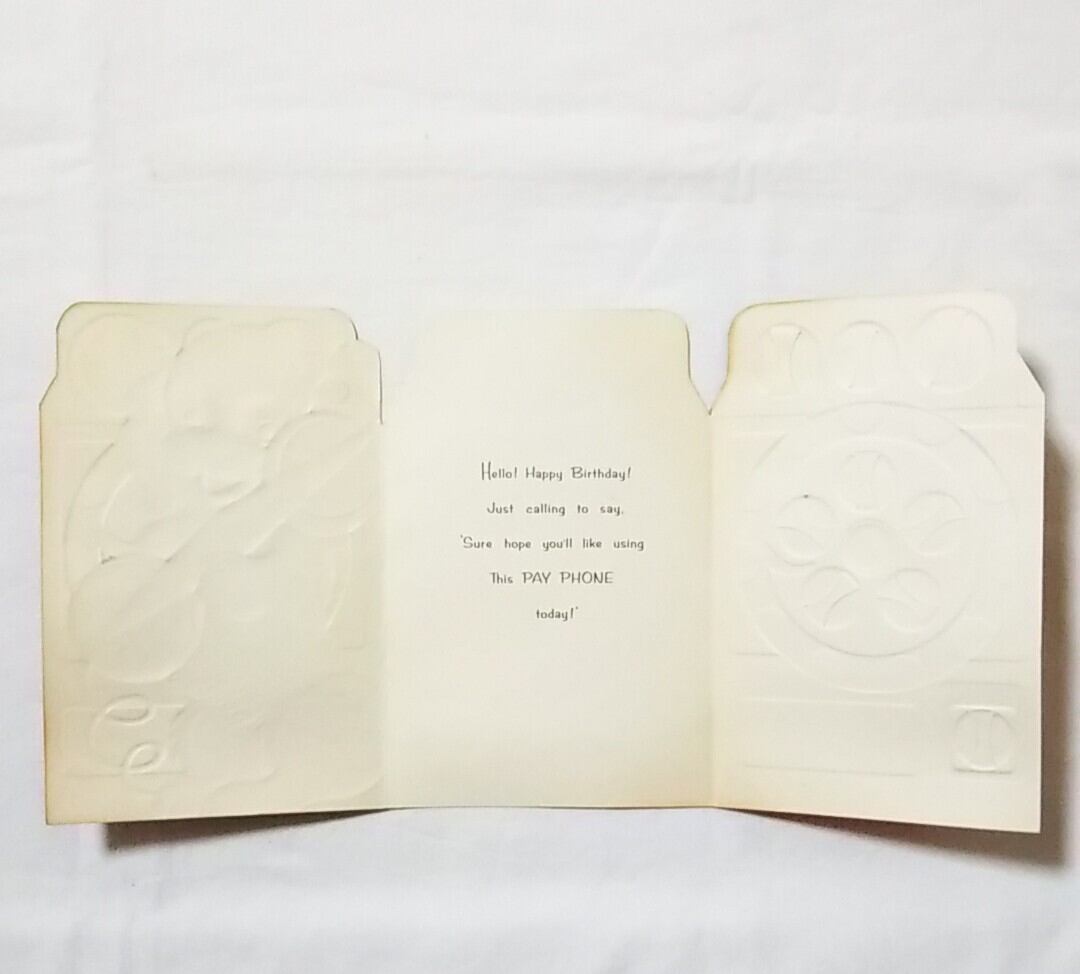 Hello! Happy Birthday!
Just calling to say,
'Sure hope you'll like using
This PAY PHONE
today!'